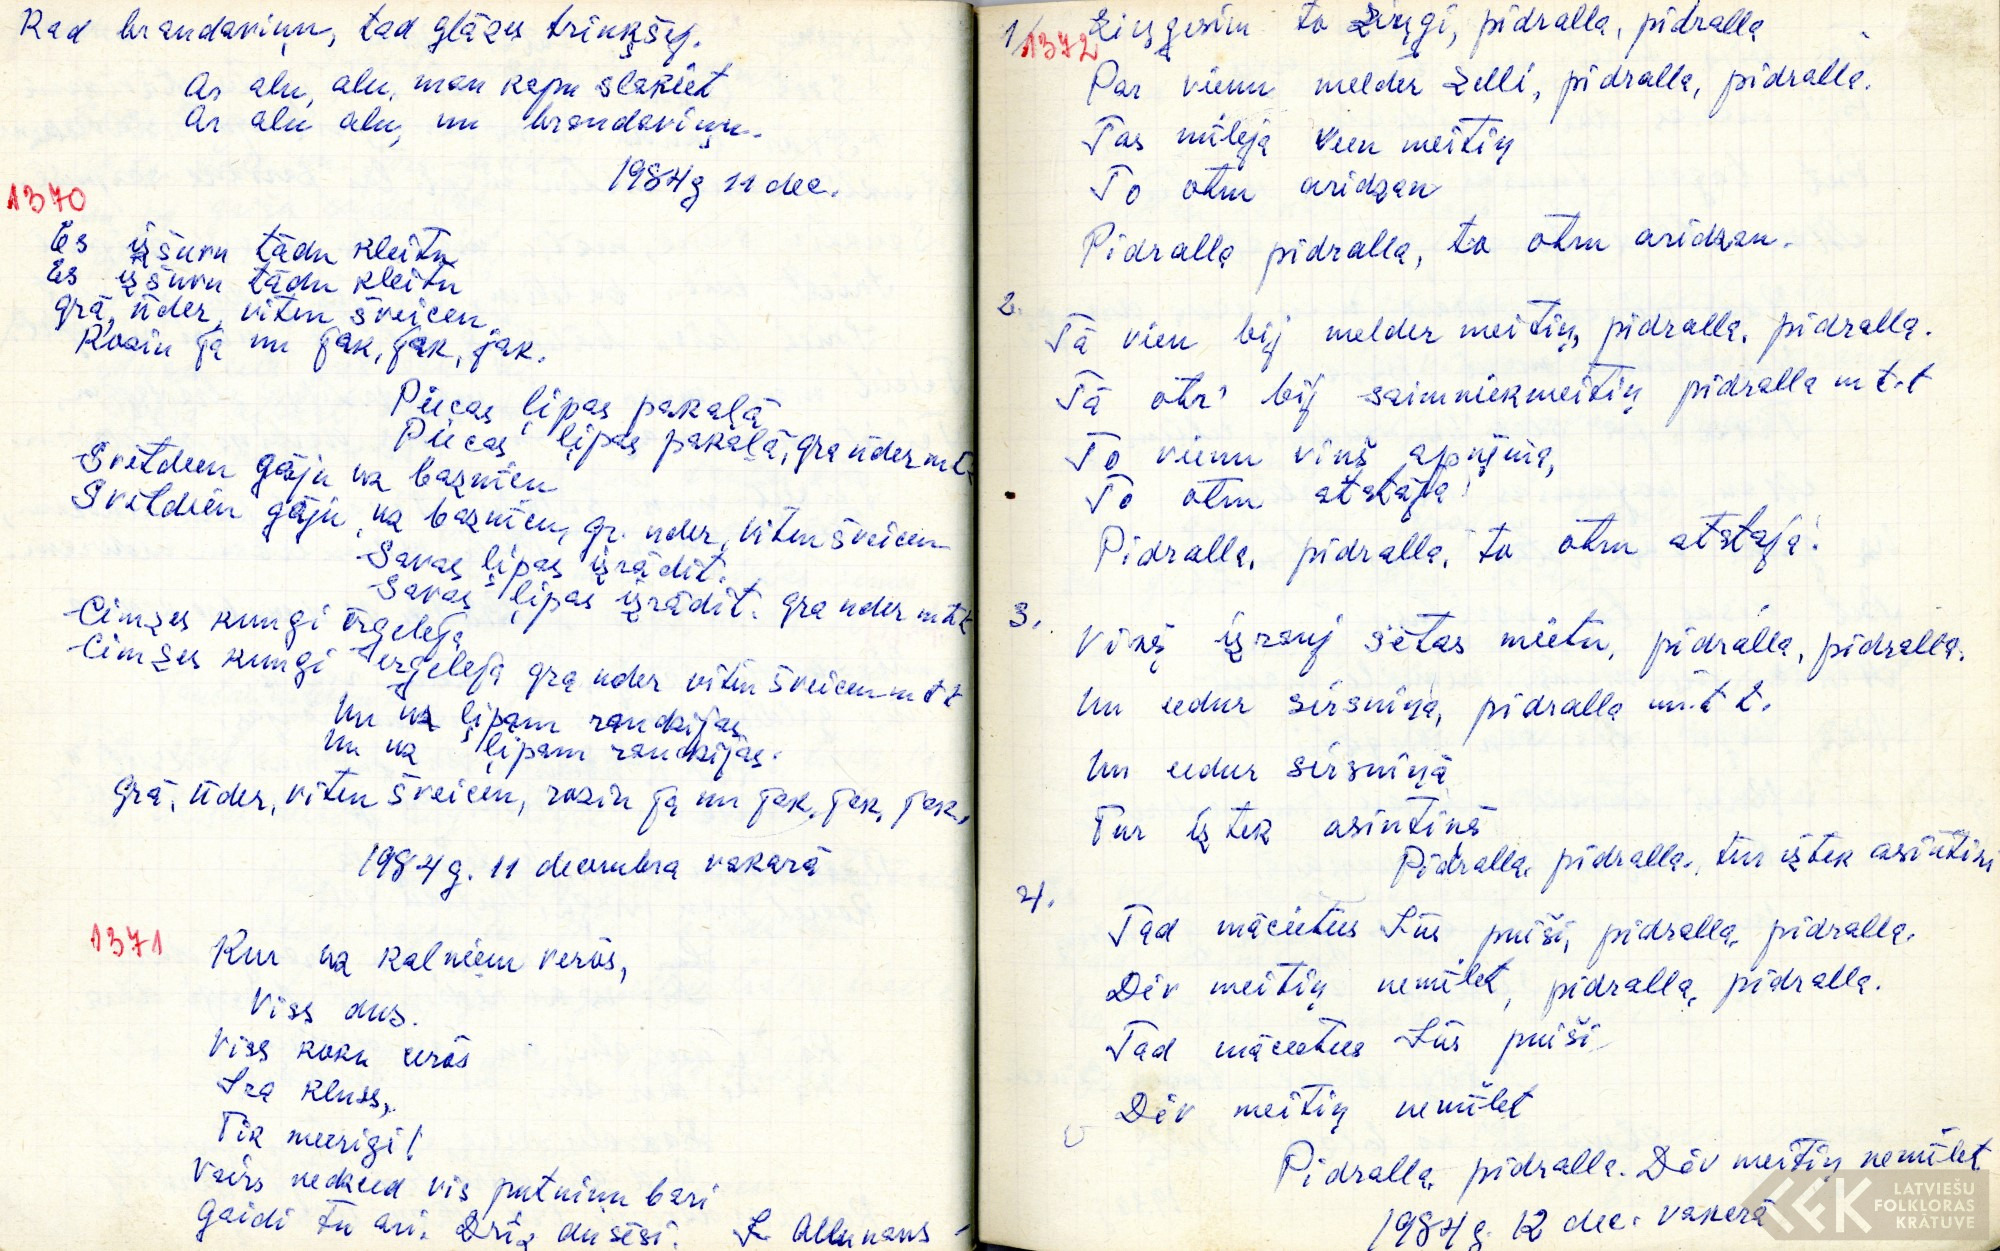 Rad brandaviņu, tad glāzes trinkšķ.
Ar alu, alu, man kapu slakiet
Ar alu alu, un brandaviņu.
1984g 11 dec.
1370
Es izšuvu tādu kleitu
Es izšuvu tādu kleitu
grā, ūder, viten šveicen,
Rozin ja un jak, jak, jak.
Pūcas ļipas pakaļā
Pūcas ļipas pakaļā, gra ūder utt
Svētdien gāju uz baznīcu
Svētdien gāju uz baznīcu, gr. uder, viten šveicen
Savas ļipas izrādīt.
Savas ļipas izrādīt. gra uder utt
Cimzes kungi ērģelēja
Cimzes kungi ērģelēja gra uder viten šveicen utt
Un uz ļipam raudzījas
Un uz ļipam raudzījas.
Grā, ūder, viten šveicen, rozin ja un jak, jak, jak,
1984g. 11 decembra vakarā
1371
Kur uz kalniem veros,
Viss dus.
Viss koku veros
Ira kluss,
Tik mierigi!
Vairs nedzied vis putniņu bari
Gaidi tu ari. Drīz dusēsi.
1/
1372
Ziņģesim to ziņģi, pidralla, pidralla
Par vienu melder zelli, pidralla, pidralla.
Tas mīleja vien meitiņ
To otru aridzan
Pidralla pidralla, to otru aridzan.
2.
Tā vien bij melder meitiņ, pidralla, pidralla.
Tā otr' bij saimniekmeitiņ pidralla utt
To vienu viņš apņēma,
To otru atstāja!
Pidralla, pidralla, to otru atstaja!
3.
Viņš izrauj sētas mietu, pidralla, pidralla.
Un iedur sirsniņa, pidralla u.t t.
Un iedur sirsniņā
Tur iztek asintiņš
Pidralla, pidralla, tur iztek asintiņ
4.
Tad mācieties Jūs puiši, pidralla, pidralla.
Div meitiņ nemīlet, pidralla, pidralla.
Tad mācieties Jūs puiši
Div meitiņ nemīlet
Pidralla, pidralla. Div meitiņ nemīlet
1984g. 12 dec. vakarā
LATVIEŠU
FOLKLORAS
KRĀTUVE